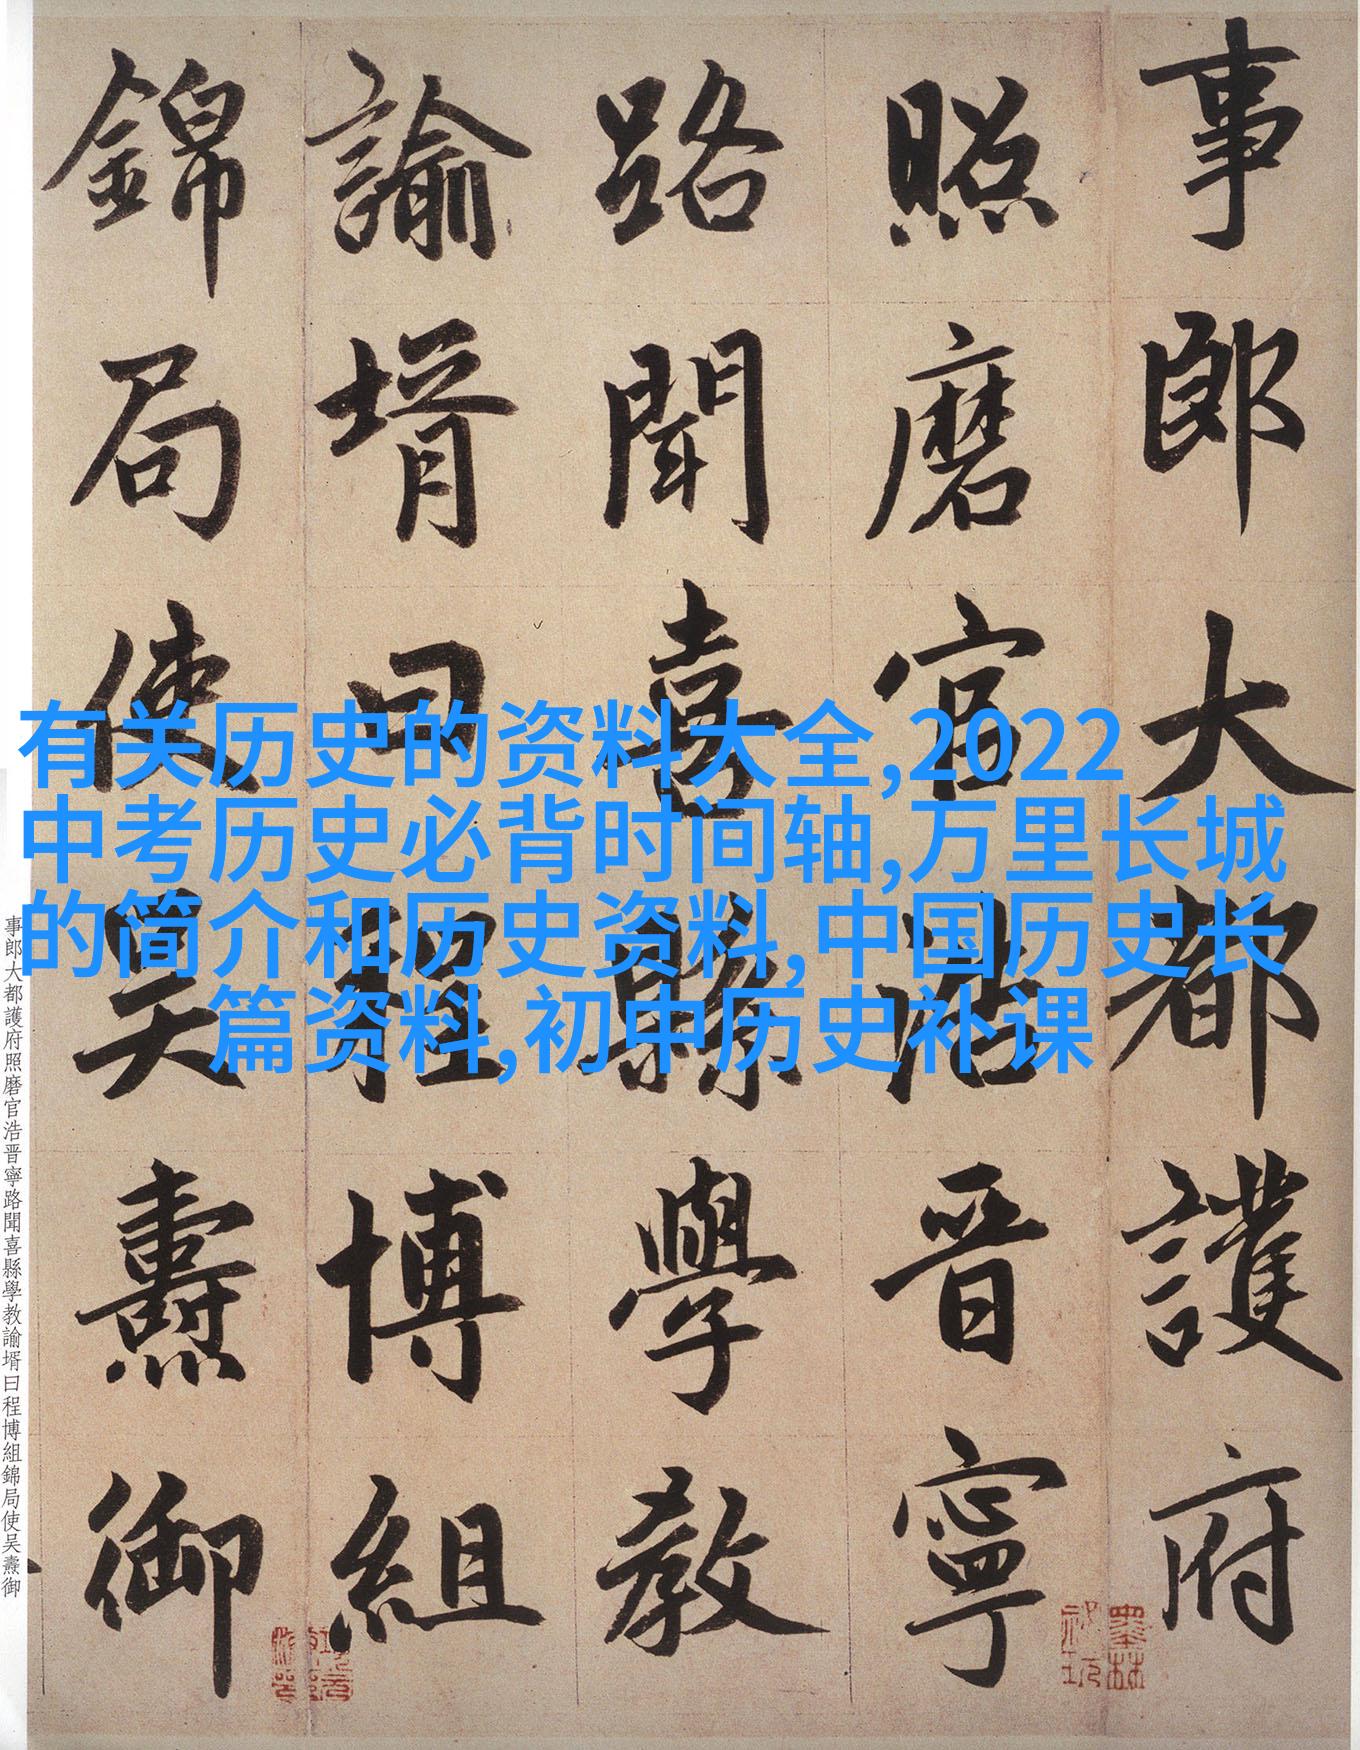 事郎大都護府
照磨官浩晋寧
路聞喜縣學教
諭壻曰程博組
錦局使吴燾御
有关历史的资料大全,2022
中考历史必背时间轴,万里长城
的简介和历史资料,中国历史长
篇资料,初中历史补课
事郎大都護府照磨官浩晋寧路聞喜縣學教諭壻曰程博組錦局使吴燾御